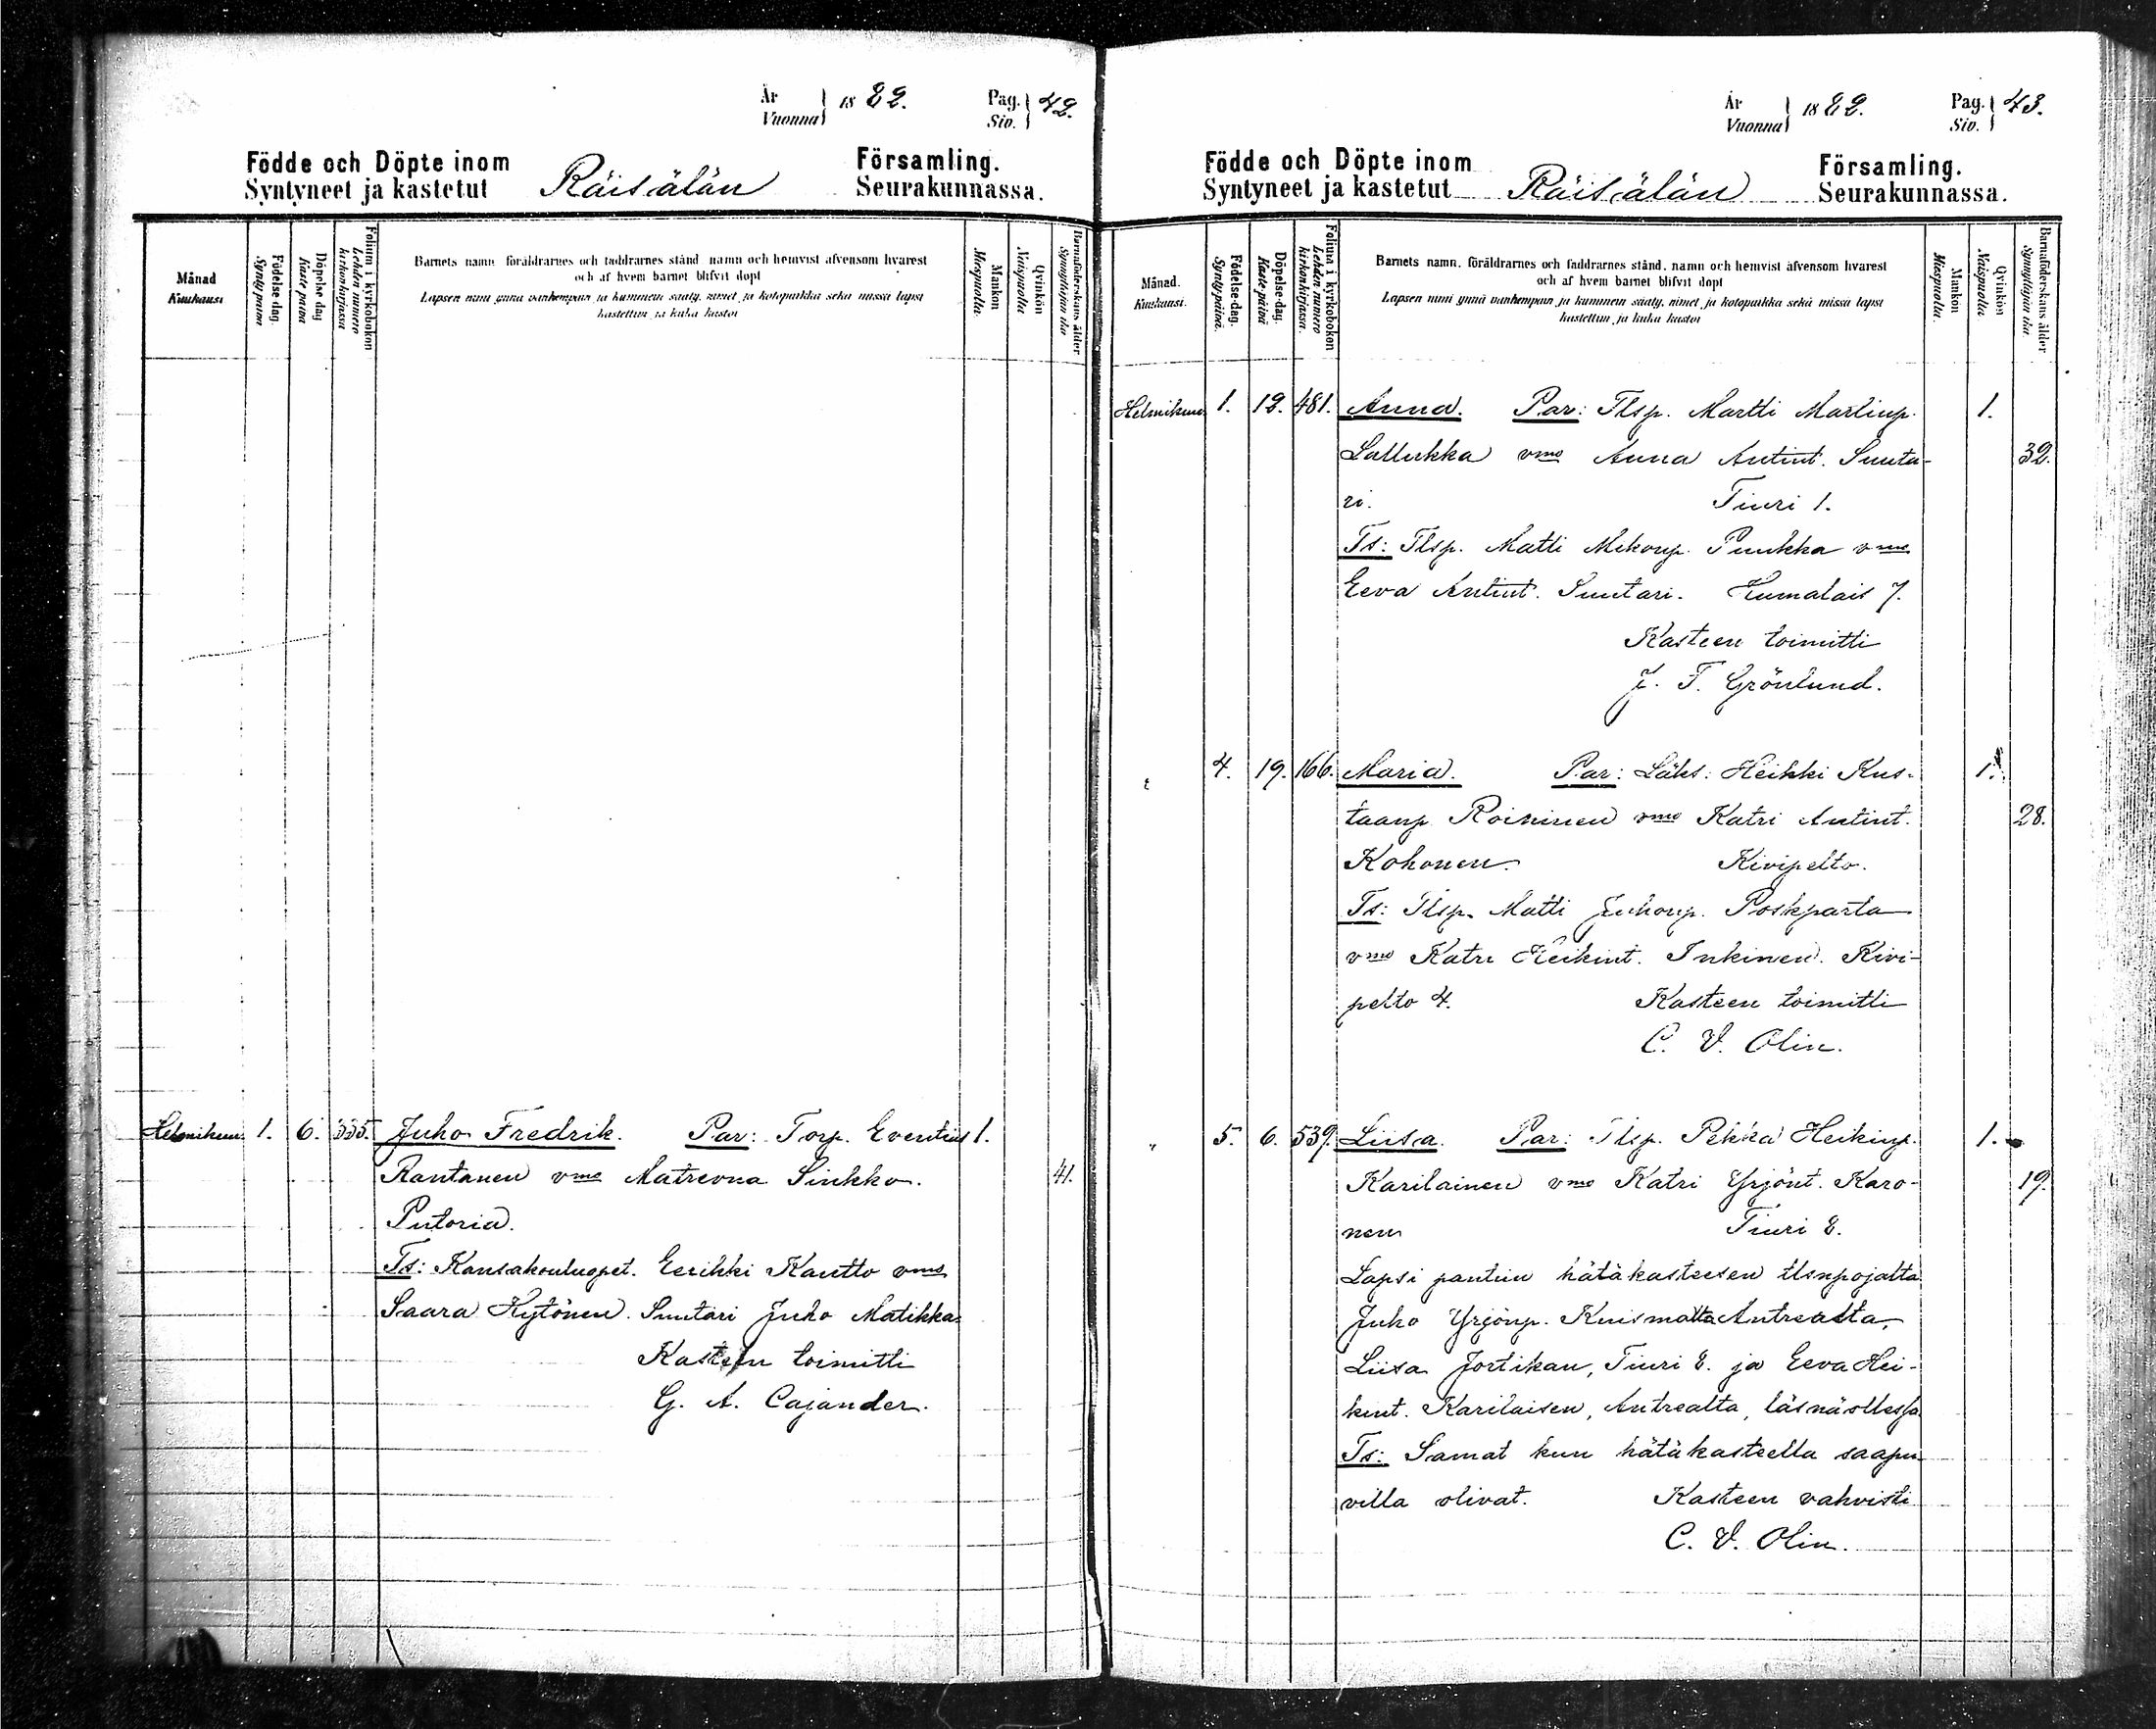 År
Vuonna } 1882.
Pag.
Siv. } 42.
Födde och Döpte inom
Syntyneet ja kastetut Räisälän Församling.
Seurakunnassa.
Månad
Kuukausi
Födelse-dag.
Synty päivä
Döpelse-dag
Kaste päivä
Folium i kyrkoboken
Lehden numero
kirkonkirjassa
Barnets namn, föräldrarnes och faddrarnes stånd, namn och hemvist äfvensom hvarest
och af hvem barnet blifvit döpt
Lapsen nimi ynnä vanhempain ja kummein sääty, nimet ja kotopaikka sekä missä lapsi
kastettiin ja kuka kastoi
Mankön
Miespuolia.
Qvinkön
Naispuolia
Barnaföderskans ålder
Synnyttäjän ikä
Helmikuu. 1. 6. 335. Juho Fredrik. Par: Torp. Eventius 1.
Rantanen vmo Matrevna Sinkko. 41.
Putoria.
Ts: Kansakouluopet. Eerikki Kautto vmo
Saara Hytönen. Suutari Juho Matikka.
Kasteen toimitti
G. A. Cajander.
År
Vuonna } 1882.
Pag.
Siv. } 43.
Födde och Döpte inom
Syntyneet ja kastetut Räisälän Församling.
Seurakunnassa.
Månad.
Kuukausi.
Födelse-dag.
Synty päivä.
Döpelse-dag.
Kaste-päivä
Folium i kyrkoboken
Lehden numero
kirkonkirjassa.
Barnets namn, föräldrarnes och faddrarnes stånd, namn och hemvist äfvensom hvarest
och af hvem barnet blifvit döpt
Lapsen nimi ynnä vanhempain ja kummein sääty, nimet ja kotopaikka sekä missä lapsi
kastettiin ja kuka kastoi
Mankön
Miespuolia.
Qvinkön
Naispuolia
Barnaföderskans ålder
Synnyttäjän ikä.
Helmikuu 1. 12. 481. Anna. Par: Tlsp. Martti Martinp. 1.
Lallukka vmo Anna Antint. Suuta- 32.
ri. Tiuri 1.
Ts: Tlsp. Matti Mikonp. Puukka vmo
Eeva Antint. Suutari. Humalais 7.
Kasteen toimitti
J. F. Grönlund.
" 4. 19. 166. Maria. Par: Läks: Heikki Kus- 1.
taanp. Roininen vmo Katri Antint. 28.
Kohonen. Kivipelto.
Ts: Tlsp. Matti Juhonp. Poskparta
vmo Katri Heikint. Inkinen. Kivi-
pelto 4. Kasteen toimitti
C. V. Olin.
" 5. 6. 539. Liisa. Par: Tlsp. Pekka Heikinp. 1.
Karilainen vmo Katri Yrjönt. Karo- 19.
nen Tiuri 8.
Lapsi pantiin hätäkasteesen tlsnpojalta
Juho Yrjönp. Kuismalta Antrealta,
Liisa Jortikan, Tiuri 8. ja Eeva Hei-
kint. Karilaisen, Antrealta, läsnäollessa.
Ts: Samat kun hätäkasteella saapu-
villa olivat. Kasteen vahvisti
C. V. Olin.